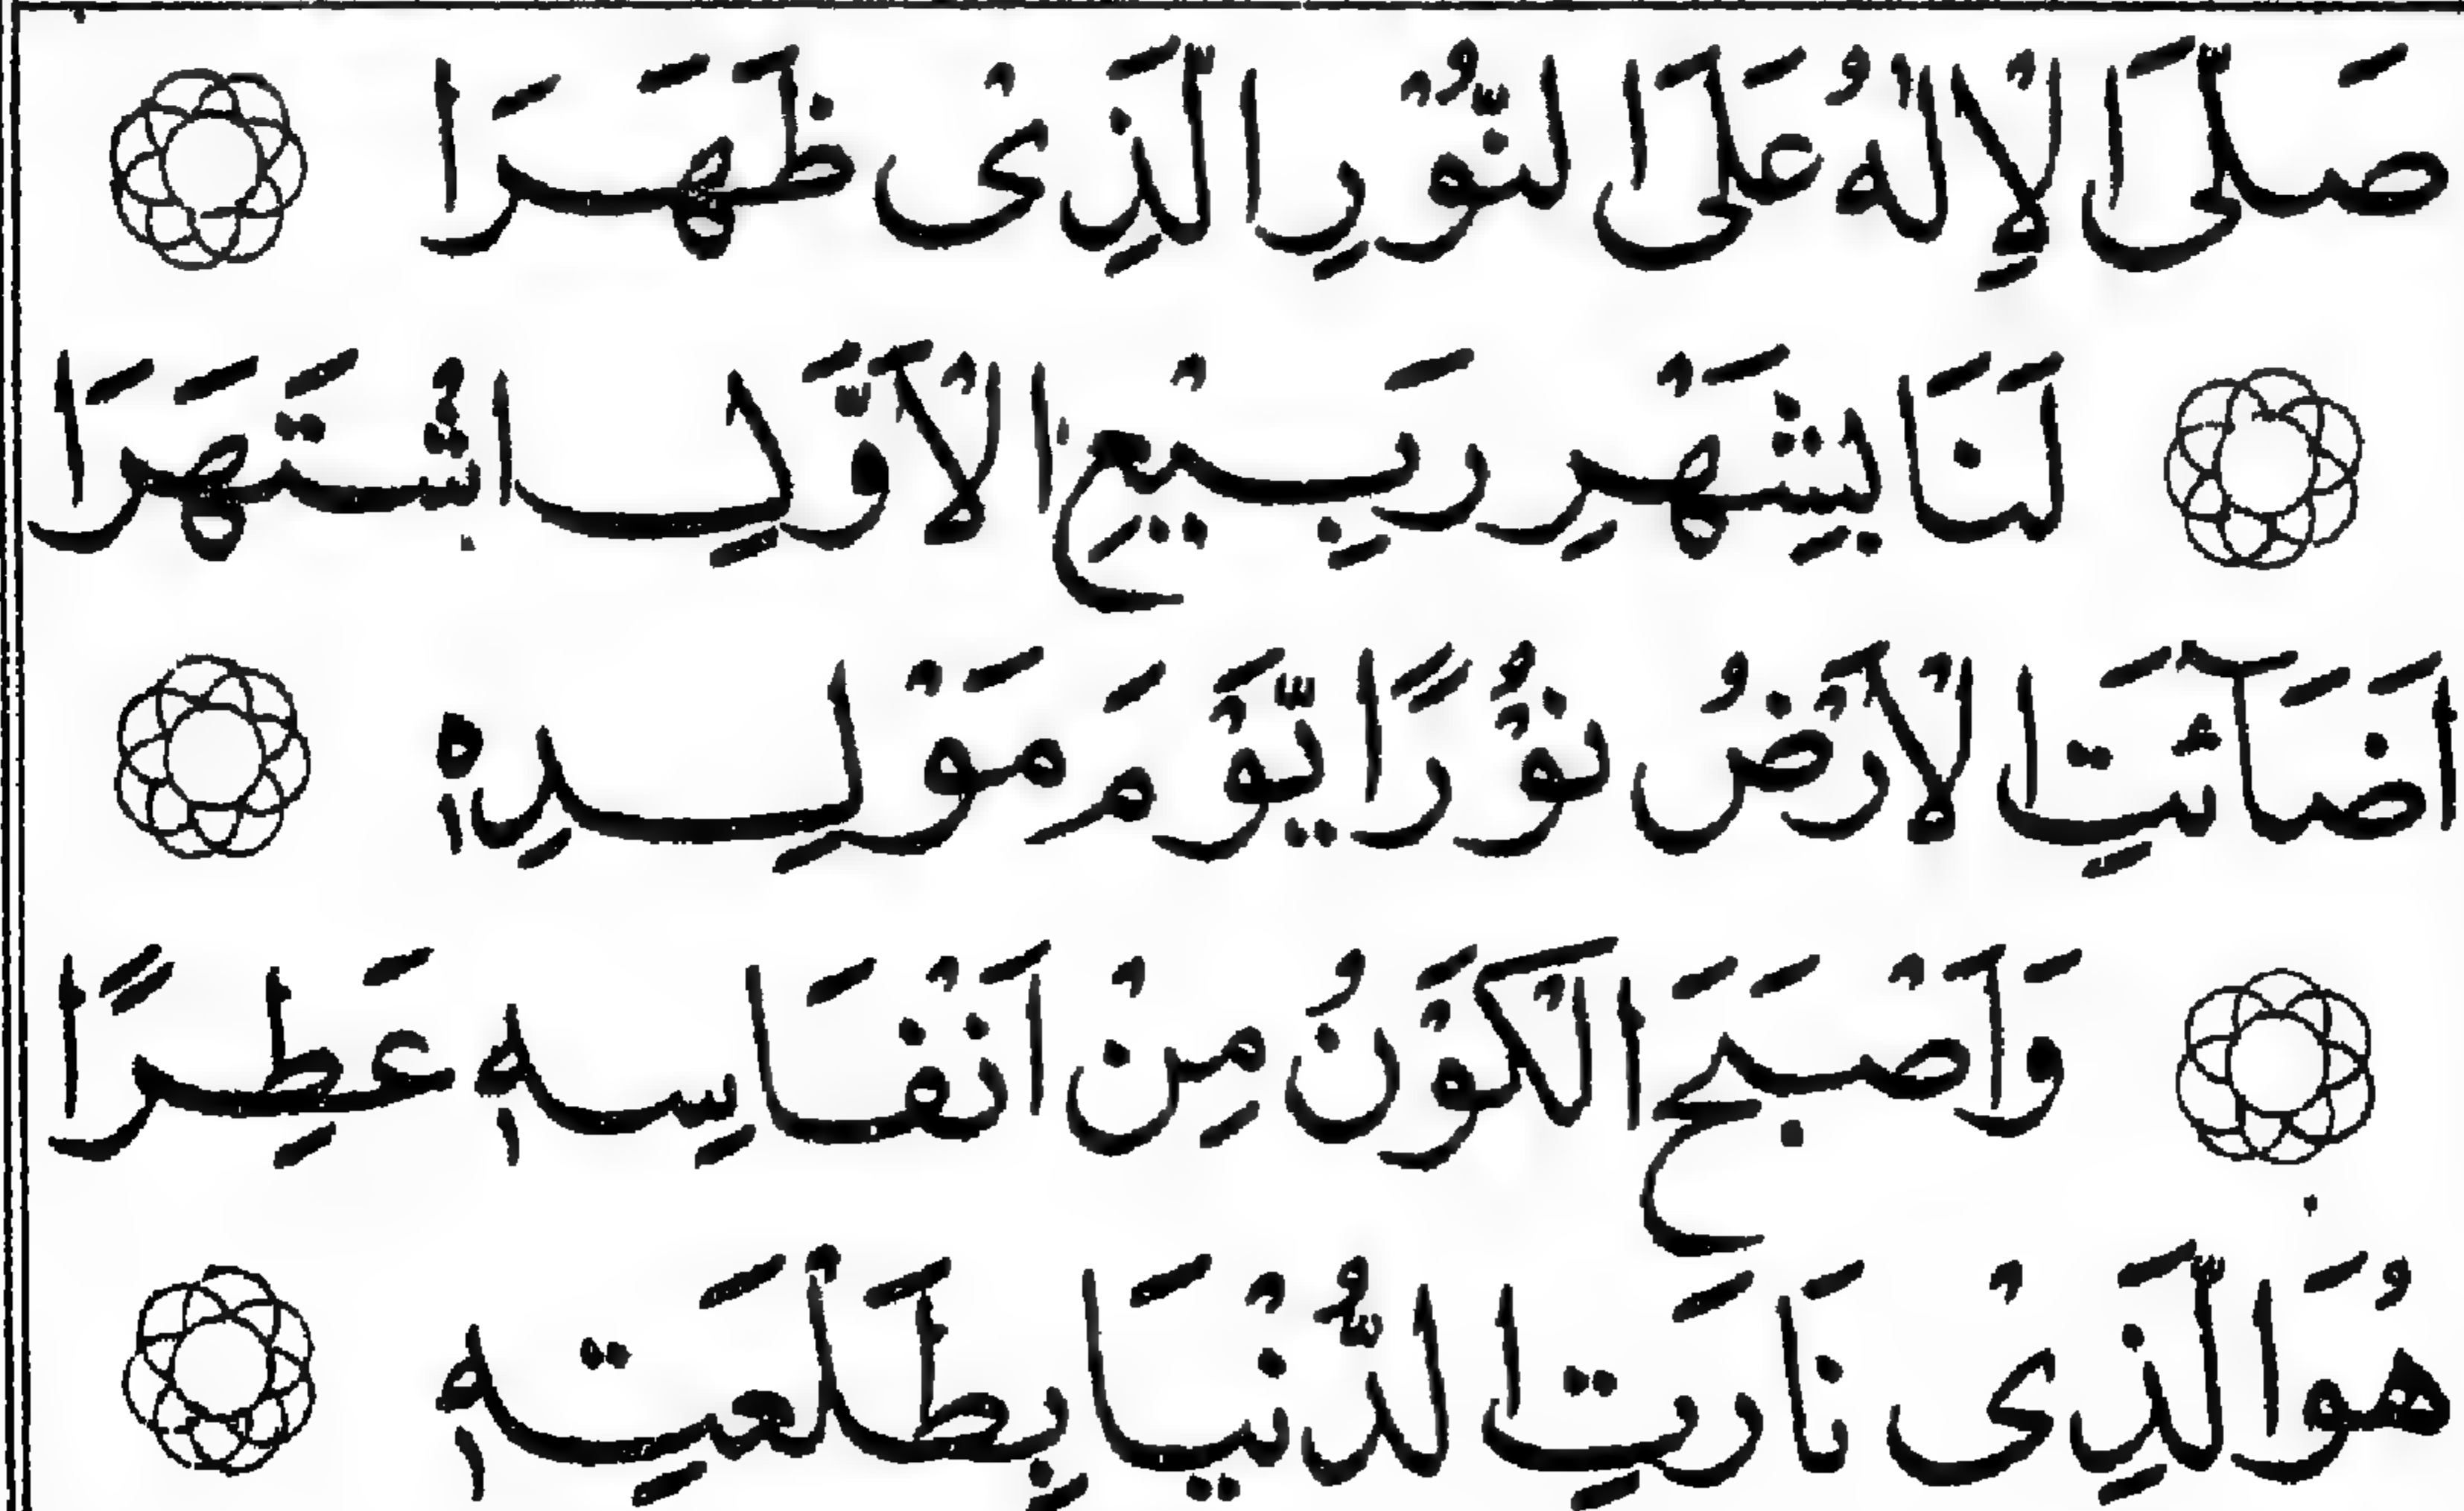 صَلَّى الْإِلٰهُ عَلَى النُّوْرِ الَّذِىْ ظَهَرَا
لَنَا بِشَهْرِ رَبِيْعِ الْاَوَّلِ اشْتُهَرَا
اَضَآئَتِ الْاَرْضُ نُوْرًا يَّوْمَ مَوْلِدِهٖ
وَاَصْبَحَ الْكَوْنُ مِنْ اَنْفَاسِهٖ عَطِرًا
هُوَ الَّذِىْ نَارَتِ الدُّنْيَا بِطَلْعَتِهٖ